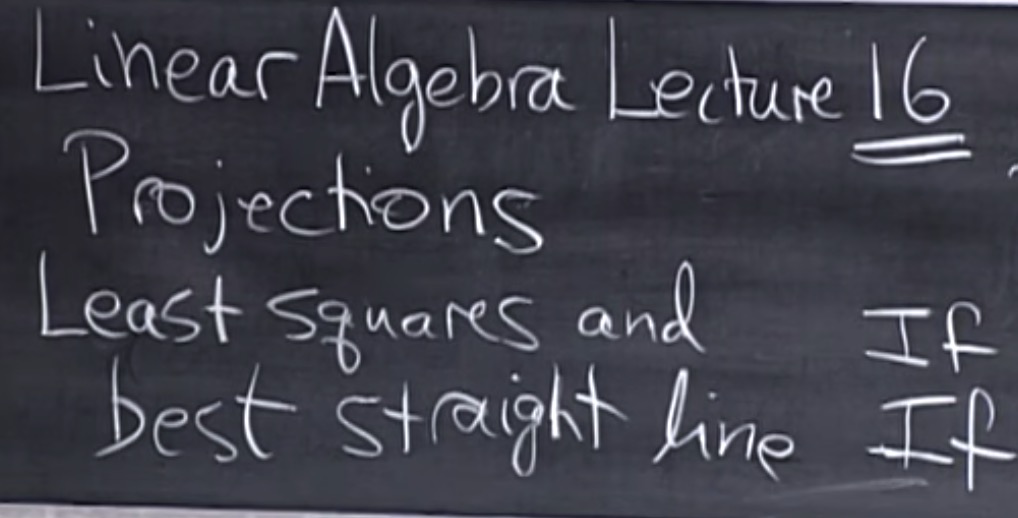 Linear Algebra Lecture 16
Projections
Least squares and If
best straight line If